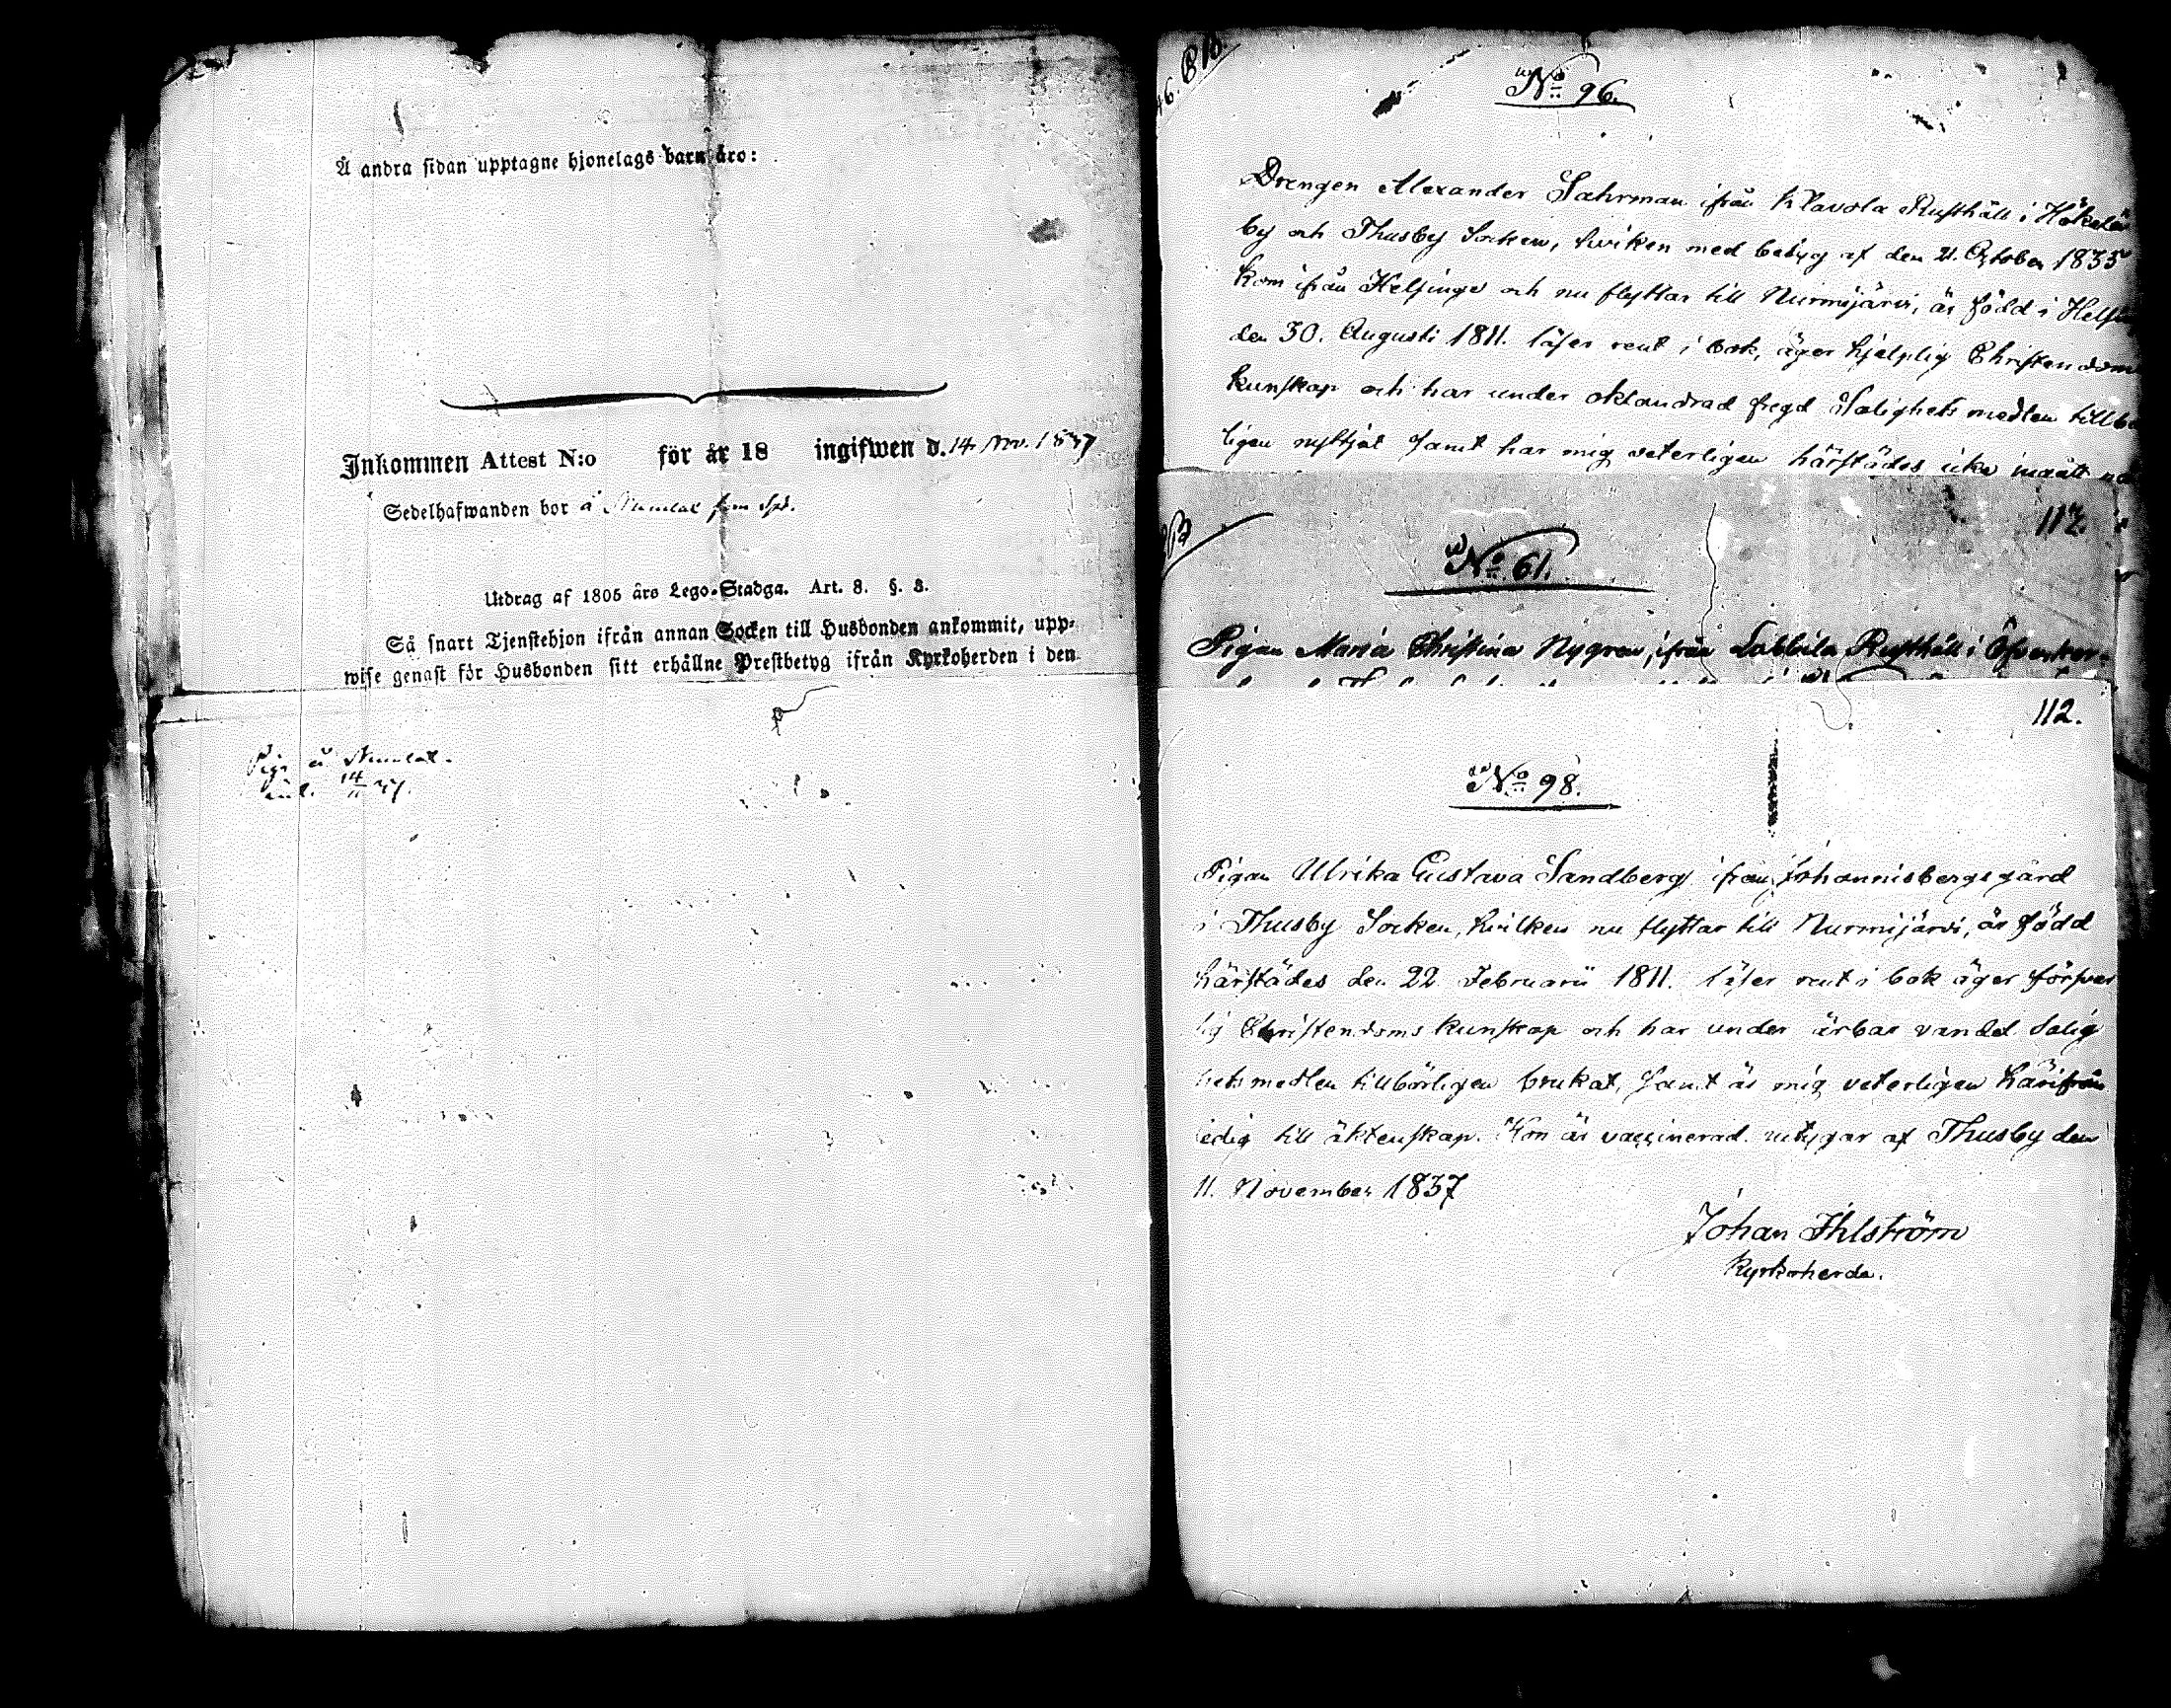 Å andra sidan upptagne hjonelags barn äro:
Inkommen Attest N:o för år 18 ingifwen d. 14 Nov. 1837
Sedelhafwanden bor å Numlax
Utdrag af 1805 års Lego-Stadga. Art. 8. §. 3.
Så snart Tjenstehjon ifrån annan Socken till Husbonden ankommit, upp-
wise genast för Husbonden sitt erhållne Prestbetyg ifrån Kyrkoherden i den
Piga å Numlax.
inl. 14/11 37.
No 96.
Drengen Alexander Sahrman ifrån Klavola Rusthåll i
by och Thusby Socken, hviken med betyg af den 21. October 1835
kom ifrån Helsinge och nu flyttar till Nurmijärvi, är född i Helsin
den 30. Augusti 1811. läser rent i bok, äger hjelplig Christendoms
kunskap och har under oklandrad fregd Salighets medlen tillbö
ligen nyttjat samt har mig veterligen härstädes icke ingått nå
112.
No 61.
Pigan Maria Christina Nygren, ifrån Labbila Rusthåll i
112.
No 98.
Pigan Ulrika Gustava Sandberg ifrån Johannisbergs gård
i Thusby Socken, hvilken nu flyttar till Nurmijärvi, är född
härstädes den 22 Februarii 1811. läser rent i bok äger försvar
lig Christendoms kunskap och har under ärbar vandel Salig
hets medlen tillbörligen brukat, samt är mig veterligen härifrån
ledig till äktenskap. Hon är vaccinerad. intygar af Thusby den
11. November 1837
Johan Ihlström
Kyrkoherde.